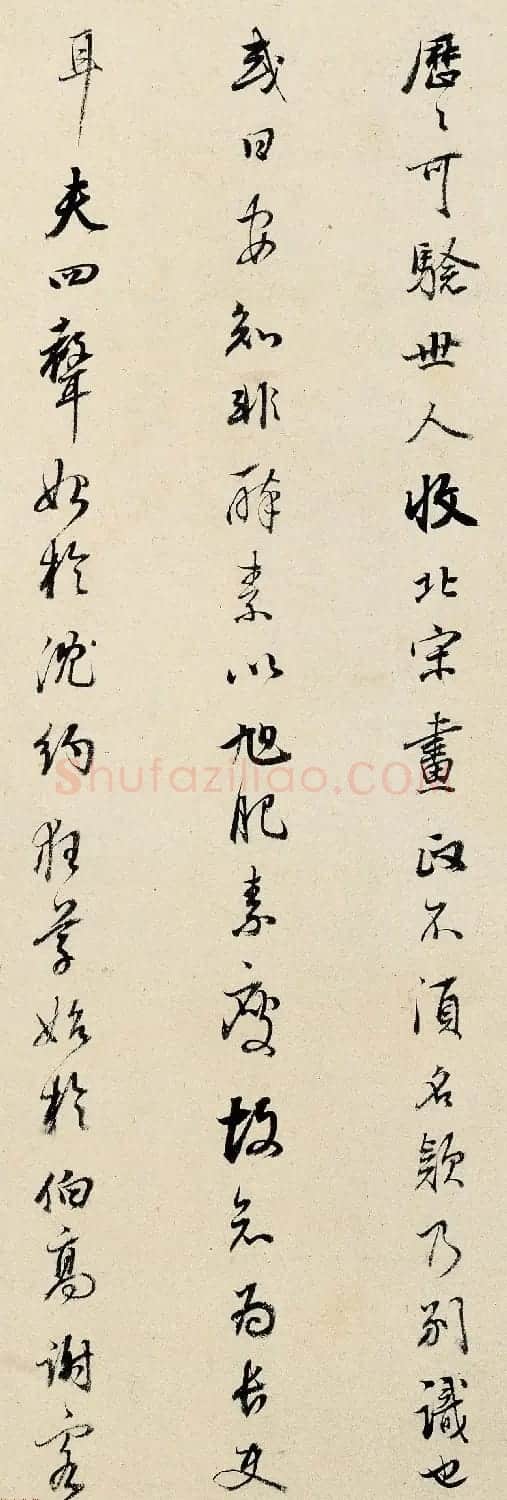 歷〻可驗世人收北宋畫政不須名款乃別識也
或曰安知非醉素以旭肥素瘦故知為長史
耳夫四聲始於沈約狂草始於伯高謝客
Shufaziliao.com